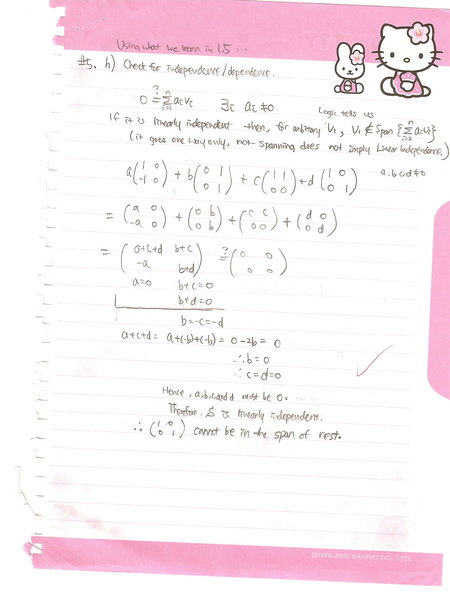 Using what we learn in 1.5 ...
#5, h) Check for independence/dependence.
0 ≟ Σⁿᵢ₌₁ aᵢvᵢ ∃ᵢ aᵢ ≠ 0.
Logic tells us
If it is linearly independent then, for arbitrary V₁, V₁ ∉ Span {Σⁿᵢ₌₂ aᵢvᵢ}
(it goes one way only, not-spanning does not imply Linear Independence.)
a(1 0; -1 0) + b(0 1; 0 1) + c(1 1; 0 0) + d(1 0; 0 1) a,b,c,d ≠ 0
= (a 0; -a 0) + (0 b; 0 b) + (c c; 0 0) + (d 0; 0 d)
= (a+c+d b+c; -a b+d) ≟ (0 0; 0 0)
a=0 b+c=0
b+d=0
b=-c=-d
a+c+d = a+(-b)+(-b) = 0-2b = 0
∴ b=0
∴ c=d=0
Hence, a,b,c,and d must be 0.
Therefore, S is linearly independent.
∴ (1 0; 0 1) cannot be in the span of rest.
©1976,2000 SANRIO CO., LTD.